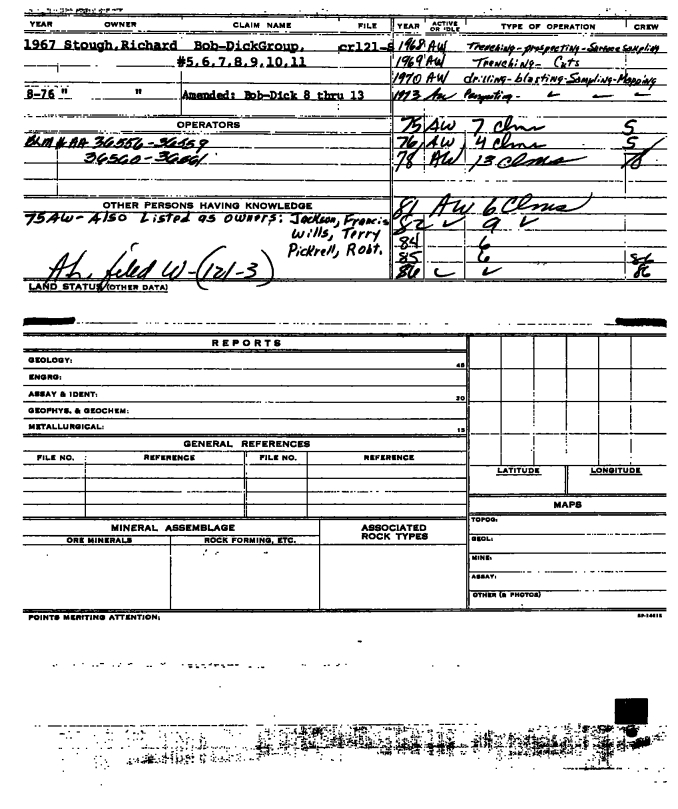 YEAR OWNER CLAIM NAME FILE YEAR ACTIVE OR IDLE TYPE OF OPERATION CREW
1967 Stough,Richard Bob-DickGroup, cr121- 1968 AW Trenching-prospecting-Surface Sampling
#5,6,7,8,9,10,11 1969 AW Trenching- Cuts
1970 AW drilling-blasting-Sampling-Mapping
8-76 " " Amended: Bob-Dick 8 thru 13 1973 AW Prospecting-
OPERATORS 75 AW 7 Clms 5
BLM # AA 36556-36559 76 AW 4 Clms 5
36560-36561 78 AW 13 Clms 78
OTHER PERSONS HAVING KNOWLEDGE 81 AW 6 Clms
75 AW- Also Listed as owners: Jackson, Francis 82 ✓ 9 ✓
Wills, Terry 84 6
Pickrell, Robt. 85 6 86
Ah. filed W-(121-3) 86 ✓ ✓ 86
LAND STATUS (OTHER DATA)
REPORTS
GEOLOGY: 45
ENGRG:
ASSAY & IDENT: 30
GEOPHYS. & GEOCHEM:
METALLURGICAL: 15
GENERAL REFERENCES
FILE NO. REFERENCE FILE NO. REFERENCE
LATITUDE LONGITUDE
MAPS
MINERAL ASSEMBLAGE ASSOCIATED ROCK TYPES
ORE MINERALS ROCK FORMING, ETC.
TOPOG:
GEOL:
MINE:
ASSAY:
OTHER (& PHOTOS)
POINTS MERITING ATTENTION: